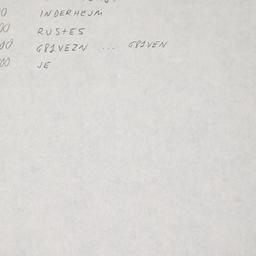 0 INDERHEJM
00 RUSTES
00 G81VEZN ... G81VEN
00 JE